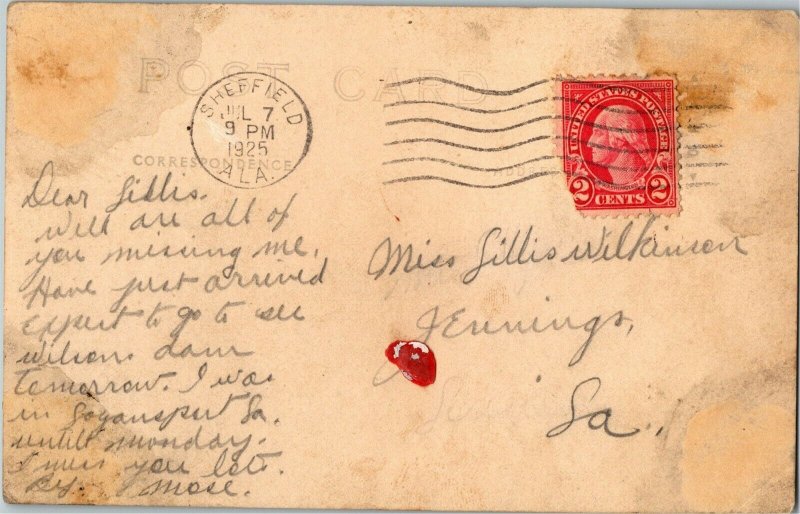 POST CARD
SHEFFIELD
JUL 7
9 PM
1925
ALA.
UNITED STATES POSTAGE
2 CENTS 2
CORRESPONDENCE
Dear Lillis.
Well are all of
you missing me.
Have just arrived
expect to go to see
wilsons dam
tomorrow. I was
in Logansport La.
untill monday.
I miss you lots.
Mose.
Miss Lillis Wilkinson
Jennings,
La.